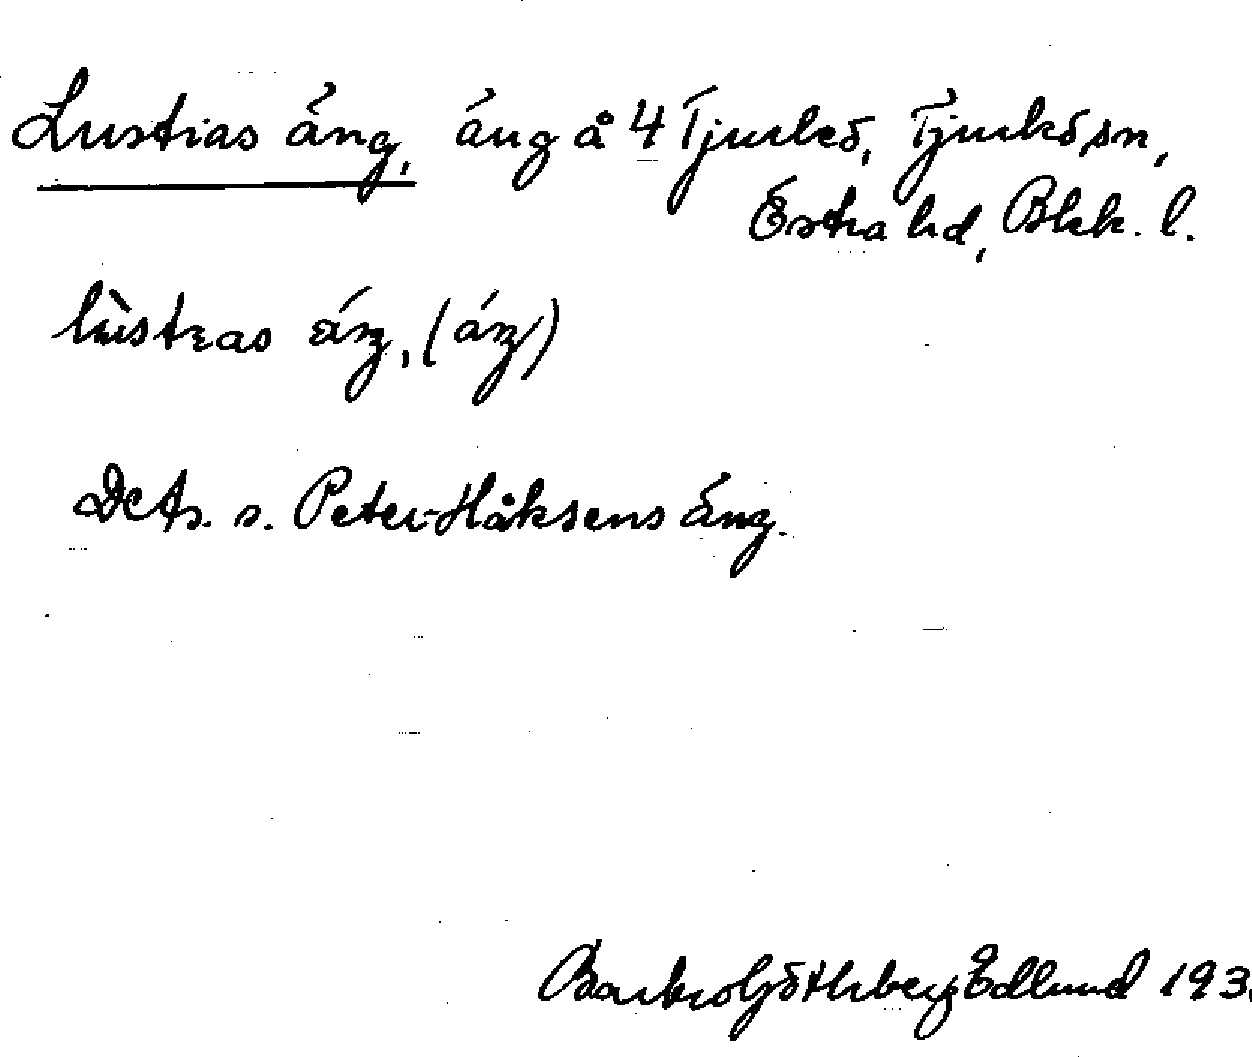 Lustias äng, äng å 4 Tjurkö, Tjurkö sn,
Östra hd, Blek. l.
lùstɪas áŋ, (áŋ)
Dets. s. Peter-Håksens äng.
Götlberg Edlund 193